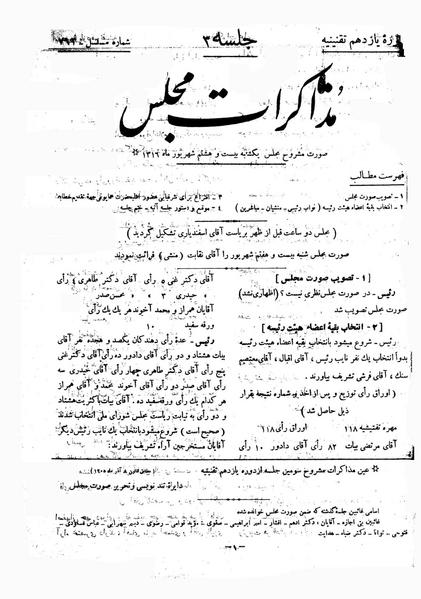 دورهٔ یازدهم تقنینیه
جلسه ۳
شماره مسلسل
مذاکرات مجلس
صورت مشروح مجلس یکشنبه بیست و هشتم شهریور ماه ۱۳۱۶ *
فهرست مطالب
۱ - تصویب صورت مجلس
۲ - انتخاب بقیهٔ اعضاء هیئت رئیسه ( نواب رئیس - منشیان - مباشرین )
۳ - اقتراع برای شرفیابی حضور اعلیحضرت همایونی جهة تقدیم خطابه
۴ - موقع و دستور جلسه آتیه - ختم جلسه
( مجلس دو ساعت قبل از ظهر بریاست آقای اسفندیاری تشکیل گردید )
صورت مجلس شنبه بیست و هفتم شهریور را آقای نقابت ( منشی ) قرائت نمودند
[ ۱ - تصویب صورت مجلس ]
رئیس - در صورت مجلس نظری نیست ؟ ( اظهاری نشد )
صورت مجلس تصویب شد
[ ۲ - انتخاب بقیهٔ اعضاء هیئت رئیسه ]
رئیس - شروع میشود بانتخاب بقیه اعضاء هیئت رئیسه
بدواً انتخاب یک نفر نایب رئیس ، آقای اقبال ، آقای معتصم
سنک ، آقای فرشی تشریف بیاورند .
( اوراق رأی توزیع و پس از اخذ و شماره نتیجه بقرار
ذیل حاصل شد )
مهره تفتیشیه ۱۱۸ اوراق رأی ۱۱۸
آقای مرتضی بیات ۸۲ رأی آقای دادور ۱۰ رأی
آقای دکتر غنی ۵ رأی آقای دکتر طاهری ۴ رأی
» حیدری ۳ » » حسن صدر
آقایان همراز و محمد آخوند هر یک یک رأی
ورقه سفید ۱۰
رئیس - عدهٔ رأی دهندگان یکصد و هجده نفر آقای
بیات هشتاد و دو رأی آقای دادور ده رأی آقای دکتر غنی
پنج رأی آقای دکتر طاهری چهار رأی آقای حیدری سه
رأی آقای صدر دو رأی آقای آخوند محمد و آقای همراز
هر کدام یک رأی ورقه سفید ده . آقای بیات با کثریت هشتاد
و دو رأی به نیابت ریاست مجلس شورای ملی انتخاب شدند
( صحیح است ) شروع میشود بانتخاب یک نایب رئیس دیگر
آقایان مستخرجین آراء تشریف بیاورند .
* عین مذاکرات مشروح سومین جلسه از دوره یازدهم تقنینیه
دایرهٔ تند نویسی و تحریر صورت مجلس
اسامی غائبین جلسهٔ گذشته که ضمن صورت مجلس خوانده شده
غائبین بی اجازه - آقایان : دکتر ادهم - افشار - امیر ابراهیمی - صفوی - مؤید قوامی - رضوی - دبیر سهرابی - عباس مسعودی -
فتوحی - توانا - دکتر ضیاء - هدایت
-۱-